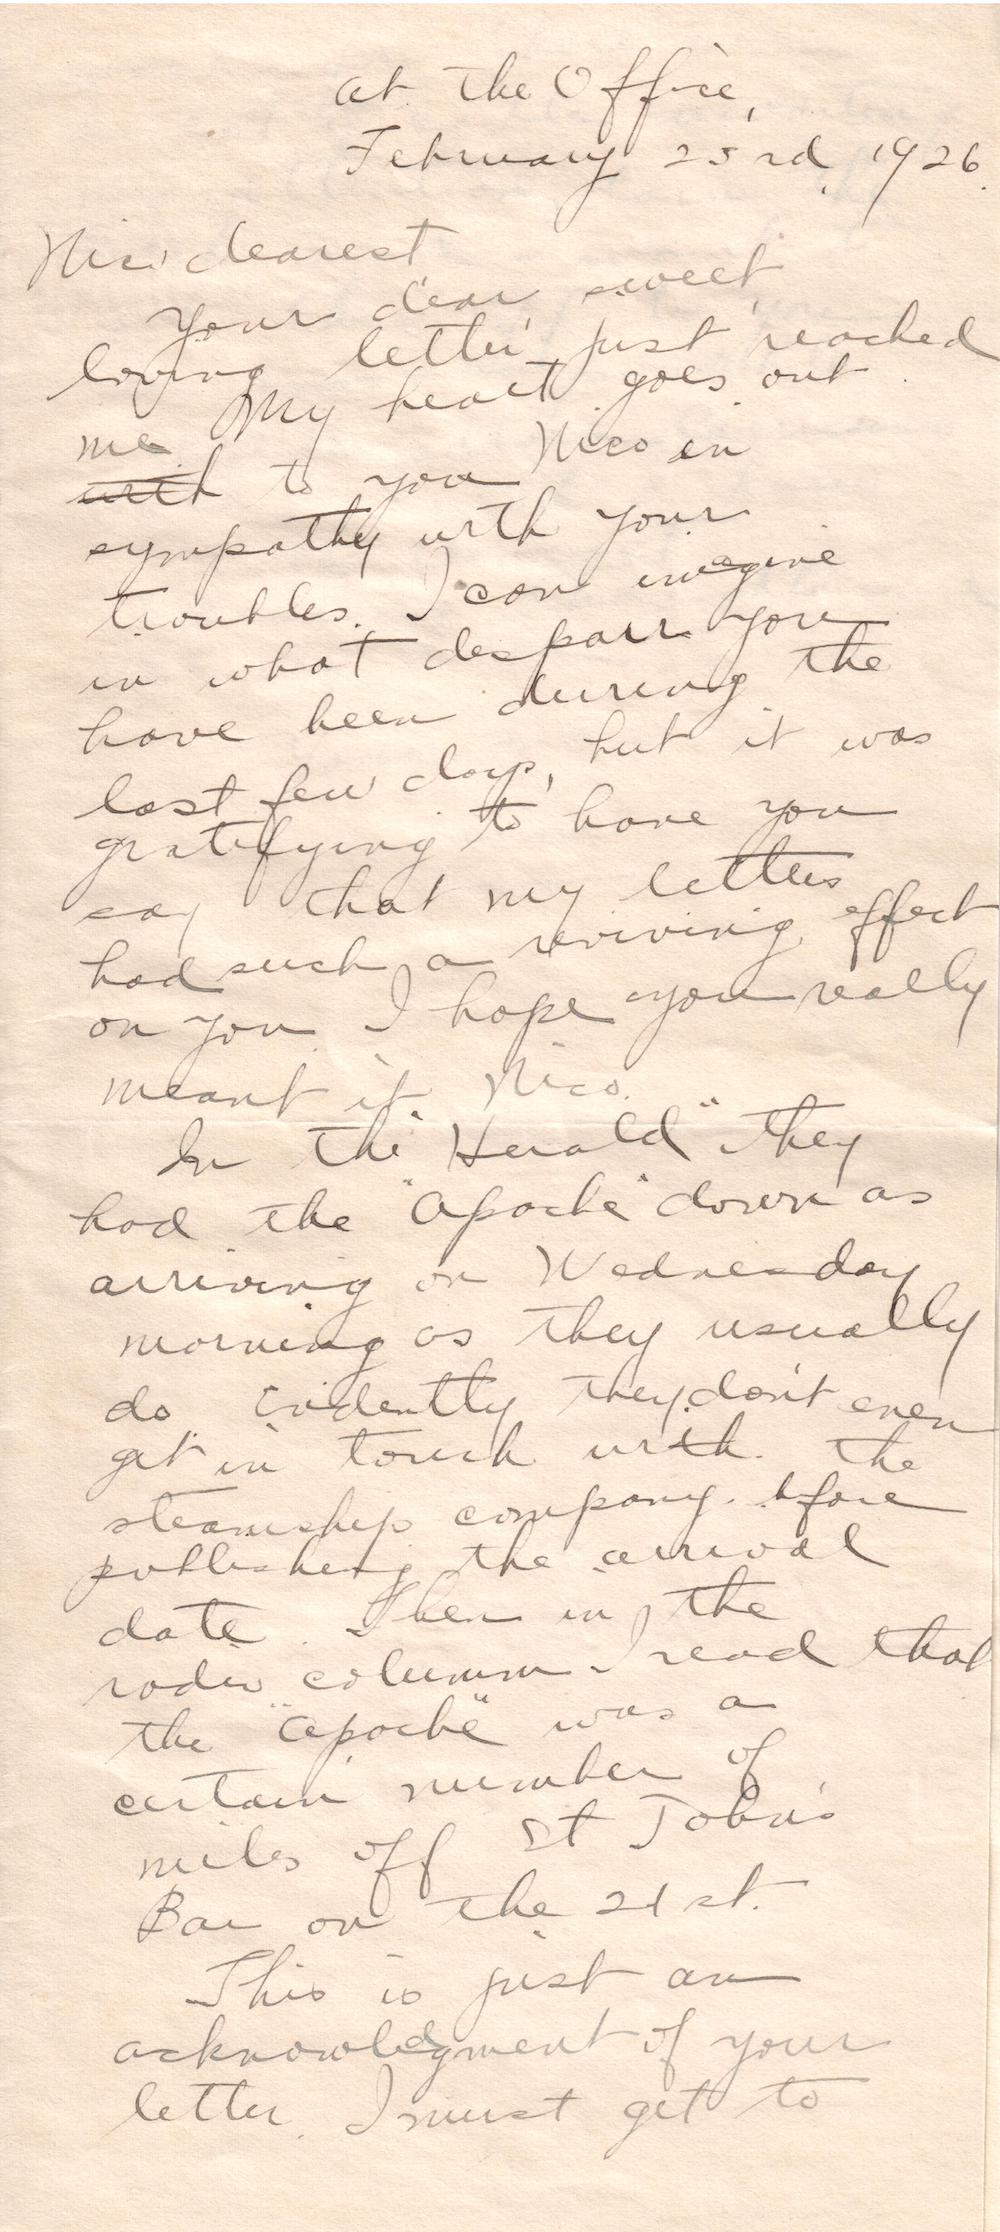 At the Office,
February 23rd, 1926.
Nico dearest
Your dear, sweet,
loving letter just reached
me My heart goes out
with to you Nico in
sympathy with your
troubles. I can imagine
in what despair you
have been during the
last few days, but it was
gratifying to have you
say that my letters
had such a reviving effect
on you. I hope you really
meant it, Nico.
In the "Herald" they
had the "Apache" down as
arriving on Wednesday
morning as they usually
do Evidently they don't even
get in touch with the
steamship company before
publishing the arrival
date. Then in the
radio column I read that
the "Apache" was a
certain number of
miles off St Johns
Bar on the 21st.
This is just an
acknowledgment of your
letter. I must get to